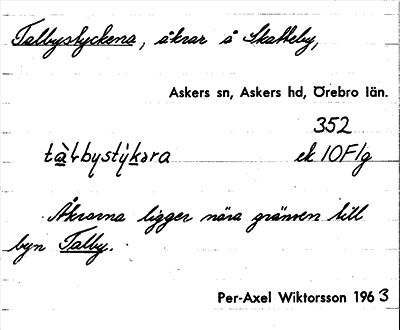 Talbystyckena, åkrar å Skatteby,
Askers sn, Askers hd, Örebro län.
352
ek 10F1g
Åkrarna ligger nära gränsen till
byn Talby.
Per-Axel Wiktorsson 1963